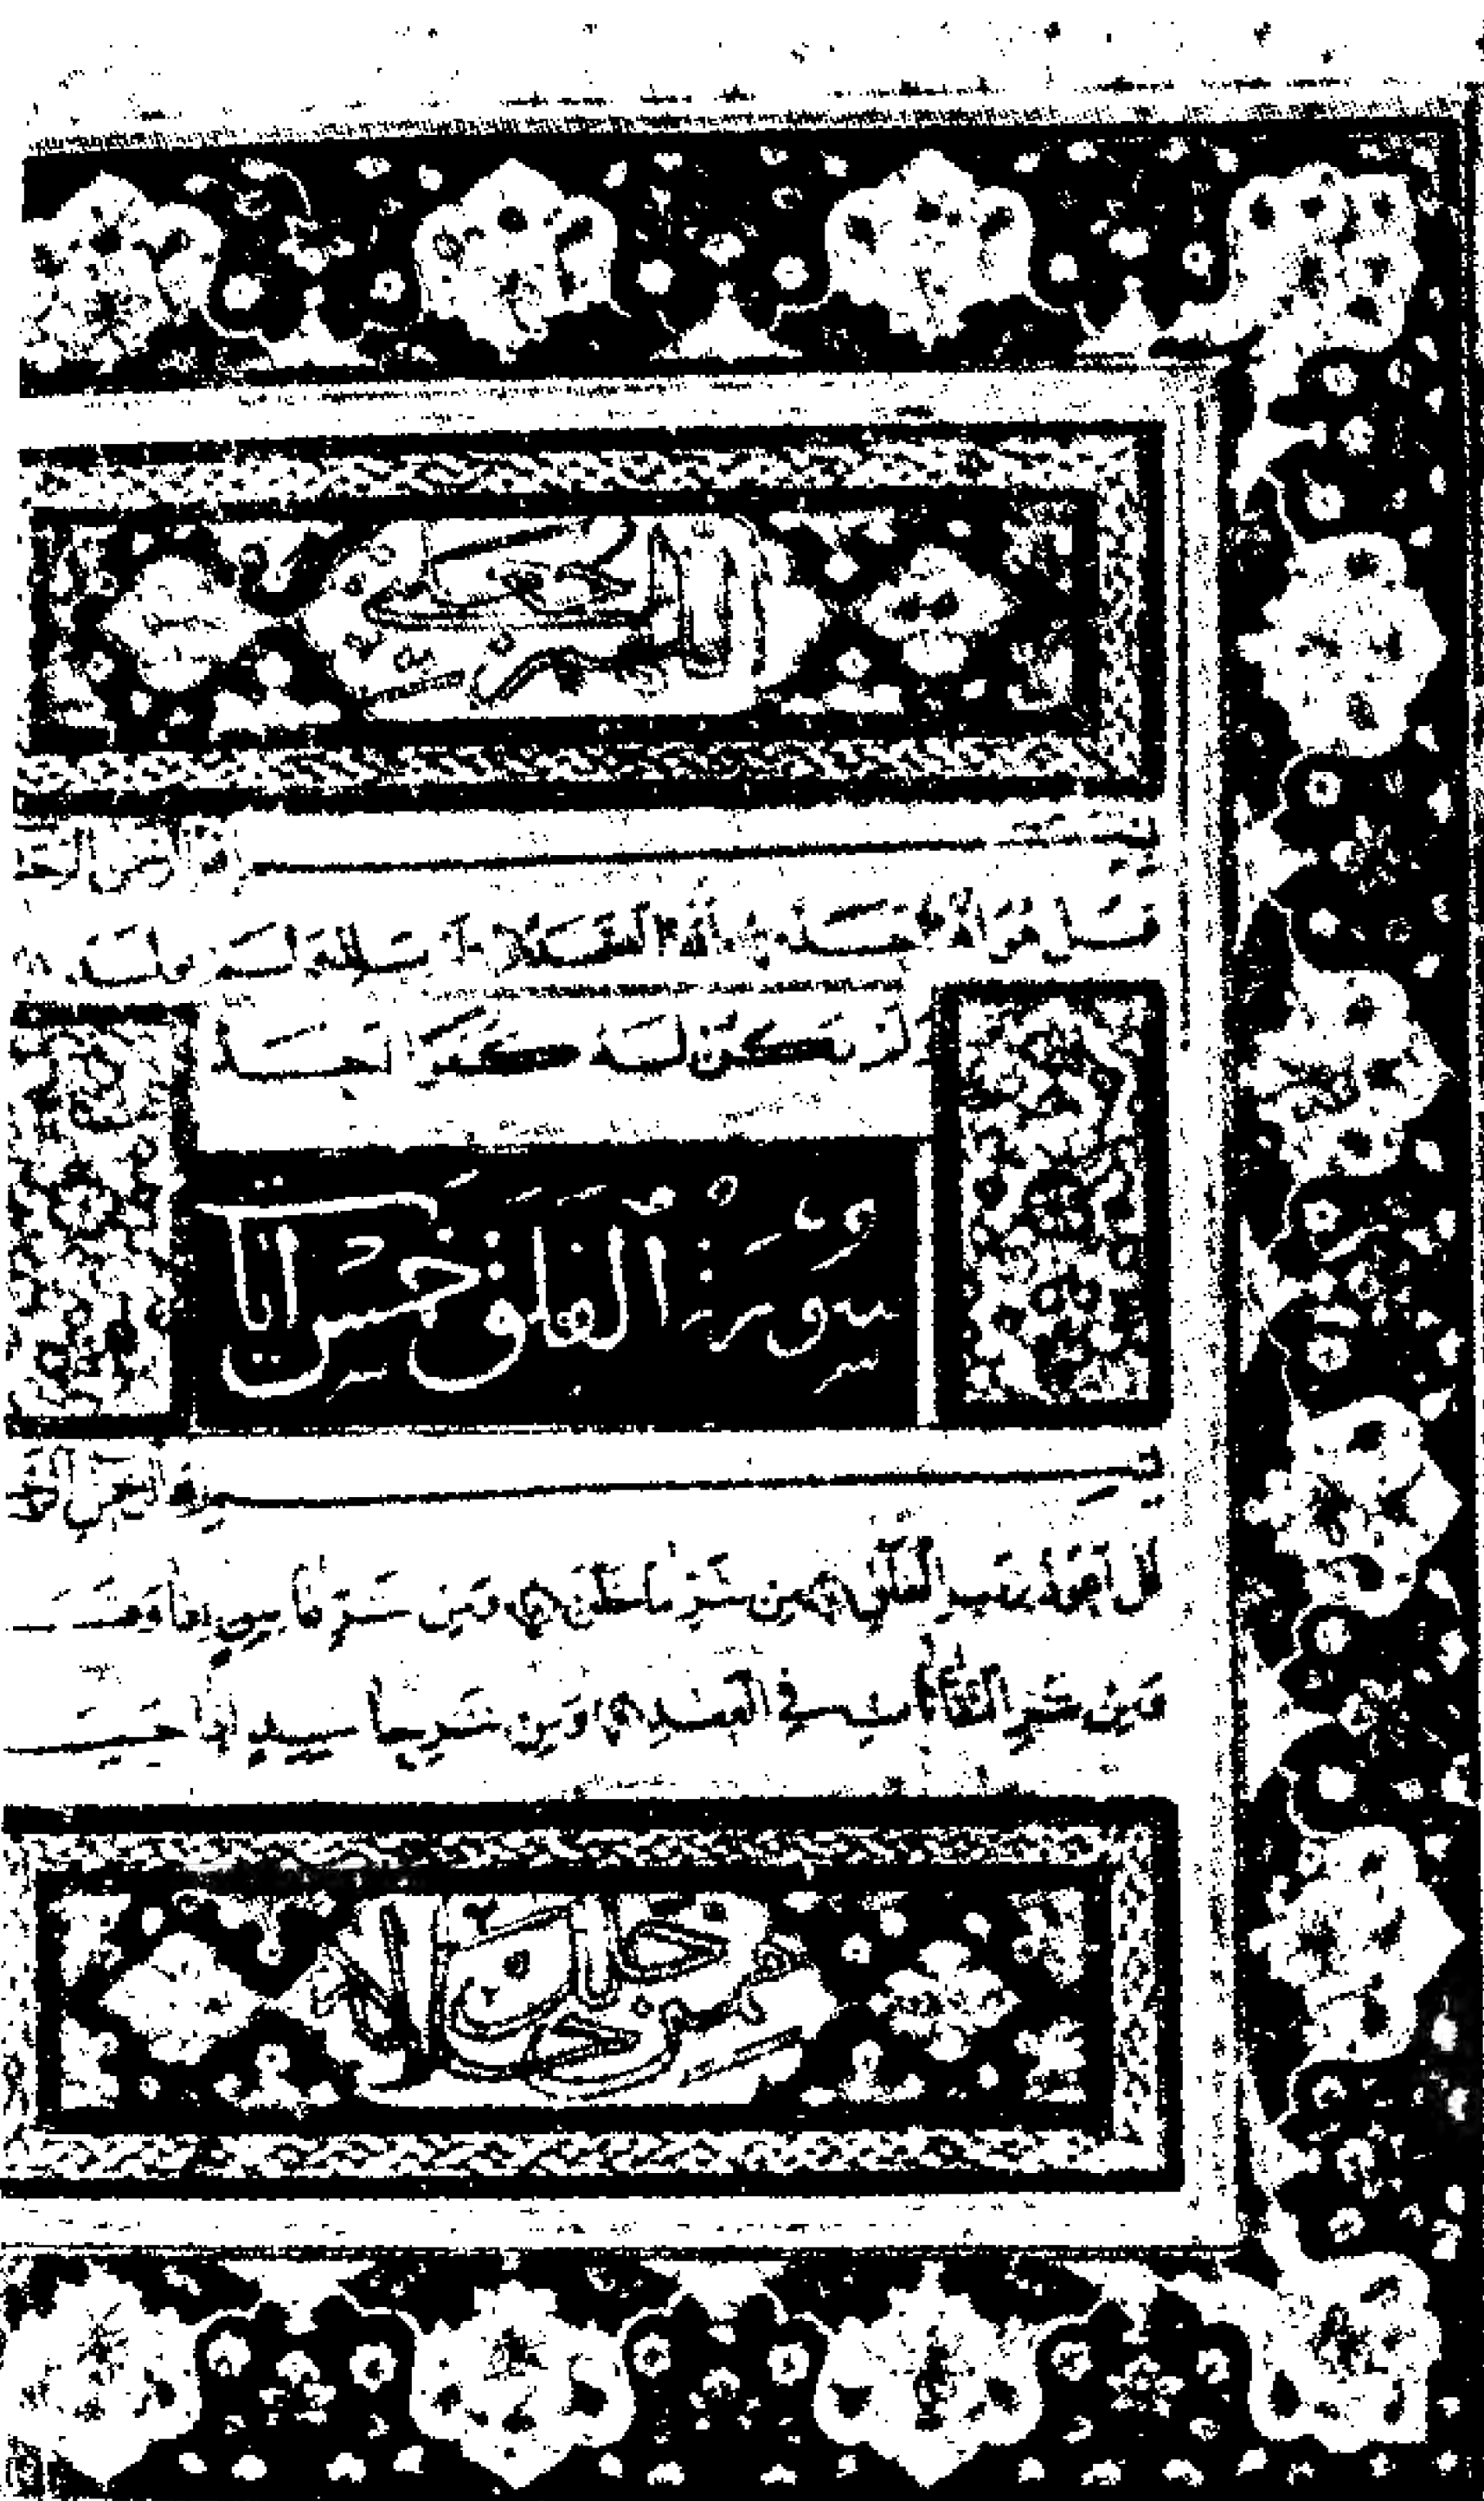 بسم الله الر
قل هو الله احد الله الصمد لم يلد ولم يولد
ولم يكن له كفوا احد
سورة الفلق خمس آيات
بسم الله الر
قل اعوذ برب الفلق من شر ما خلق ومن شر غاسق اذا وقب
ومن شر النفاثات في العقد ومن شر حاسد اذا حسد